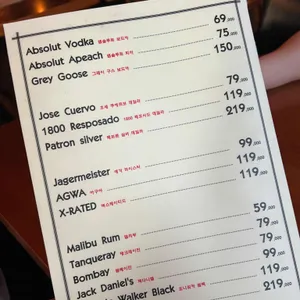 Absolut Vodka 앱솔루트 보드카 69,000
Absolut Apeach 앱솔루트 피치 75,000
Grey Goose 그레이 구스 보드카 150,000
Jose Cuervo 호세 쿠에르보 데킬라 79,000
1800 Resposado 1800 레포사도 데킬라 119,000
Patron silver 패트론 실버 데킬라 219,000
Jagermeister 예거 마이스터 99,000
AGWA 아구아 119,000
X-RATED 엑스레이티드 119,000
Malibu Rum 말리부 59,000
Tanqueray 탱크레이진 79,000
Bombay 봄베이진 79,000
Jack Daniel's 잭다니엘 99,000
Walker Black 조니워커 블랙 119,000
219,000